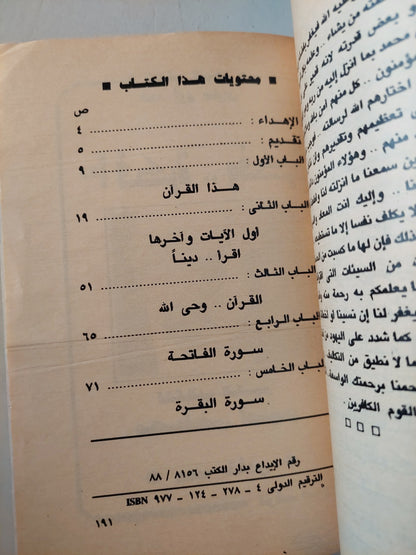 ■ محتويات هذا الكتاب ■
ص
الإهداء : ٤
تقديم : ٥
الباب الأول : ٩
هذا القرآن
الباب الثانى : ١٩
أول الآيات وآخرها
اقرأ .. ديناً
الباب الثالث : ٥١
القرآن .. وحى الله
الباب الرابع : ٦٥
سورة الفاتحة
الباب الخامس : ٧١
سورة البقرة
رقم الإيداع بدار الكتب ٨١٥٦ / ٨٨
الترقيم الدولى ٤ – ٢٧٨ – ١٢٤ – ٩٧٧ ISBN
١٩١
من يشاء
بعض قدرته لأنه
محمد بما انزل إليه من
كل منهم
اختارهم الله لرسالته
تعظيمهم وتقديرهم
منهم .. وهؤلاء
سمعنا ما انزلته لنا
.. وإليك انت
لا يكلف نفسا إلا ما
ذلك فإن لها ما كسبت من
من السيئات التى
يعلمكم به رحمة منه
يغفر لنا إن نسينا او
كما شدد على اليهود
ما لا نطيق من التكاليف
برحمتك الواسعة
القوم الكافرين .
□ □ □